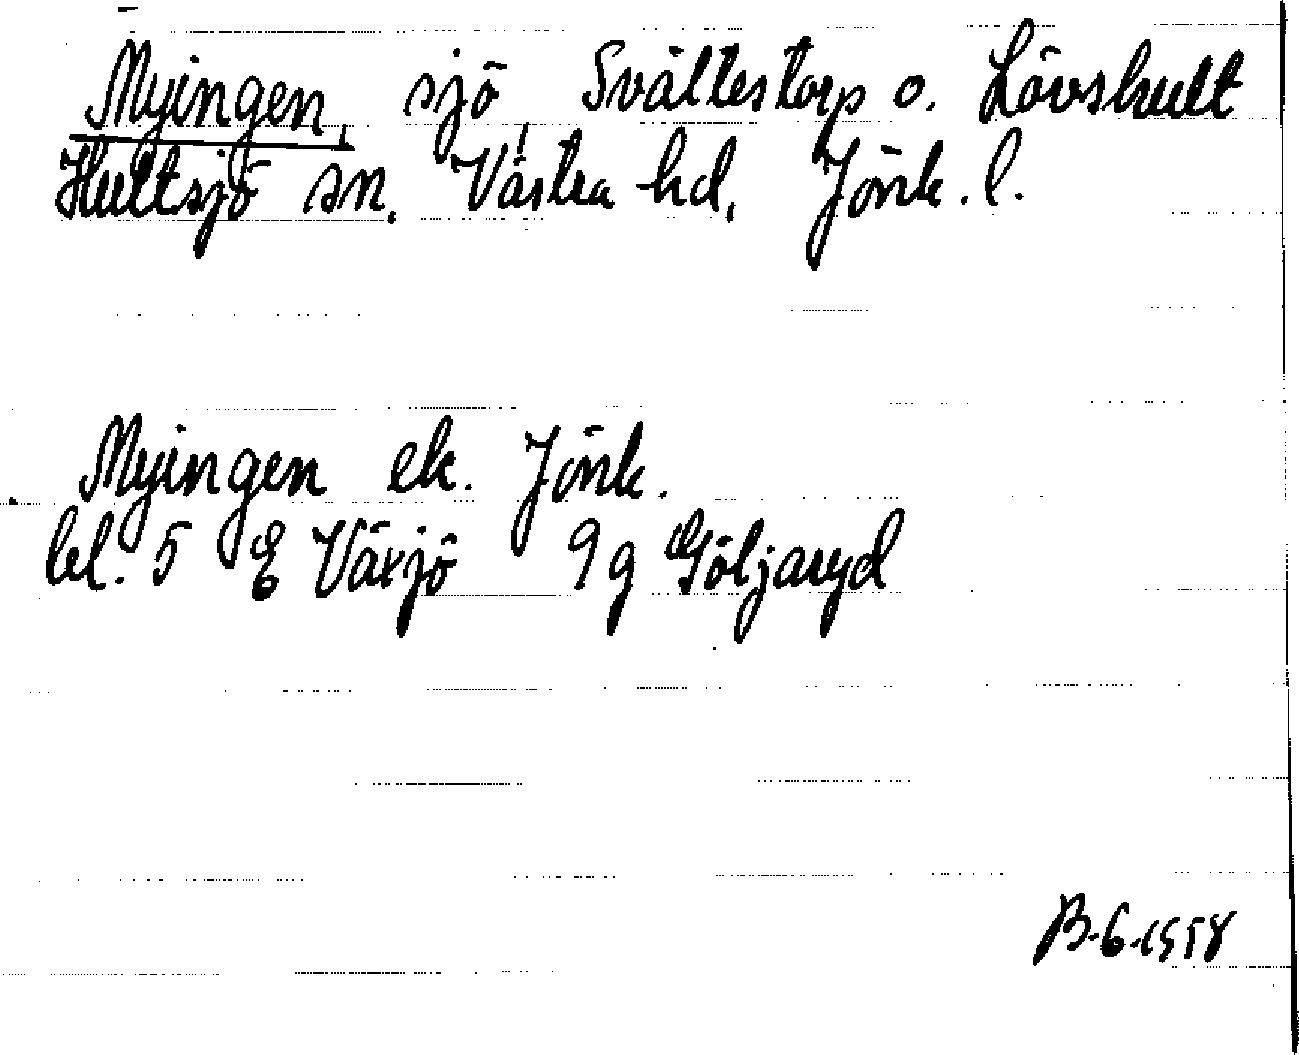 Myingen, sjö, Svältestorp o. Lövshult
Hultsjö sn. Västra hd, Jönk. l.
Myingen ek. Jönk.
bl. 5 E Växjö 9g Göljaryd
B-6-1958